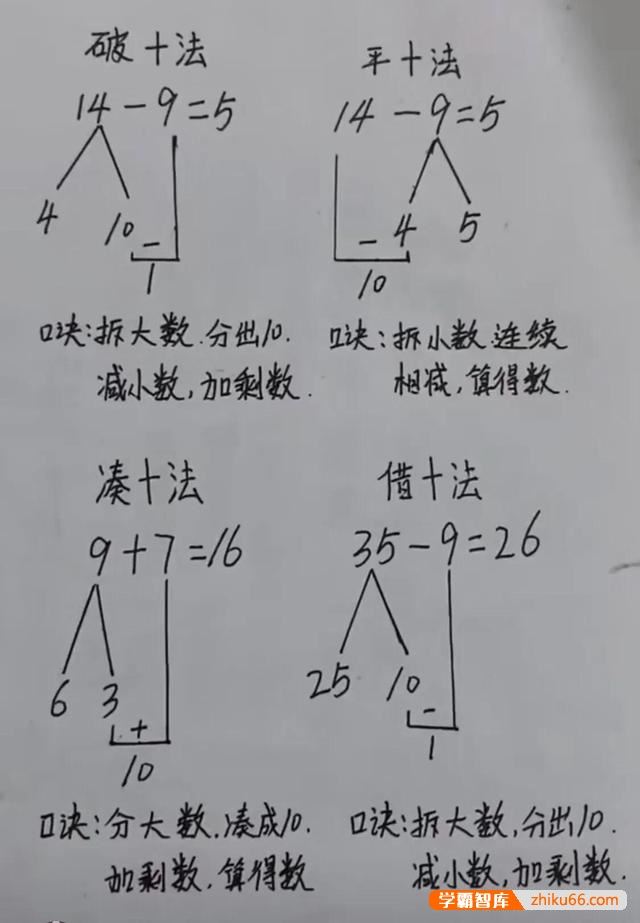 破十法
14-9=5
4 10
-
1
口诀:拆大数.分出10.
减小数,加剩数.
平十法
14-9=5
4 5
-
10
口诀:拆小数,连续
相减,算得数.
凑十法
9+7=16
6 3
+
10
口诀:分大数,凑成10.
加剩数,算得数
借十法
35-9=26
25 10
-
1
口诀:拆大数,分出10.
减小数,加剩数.
学霸智库
zhiku66.com